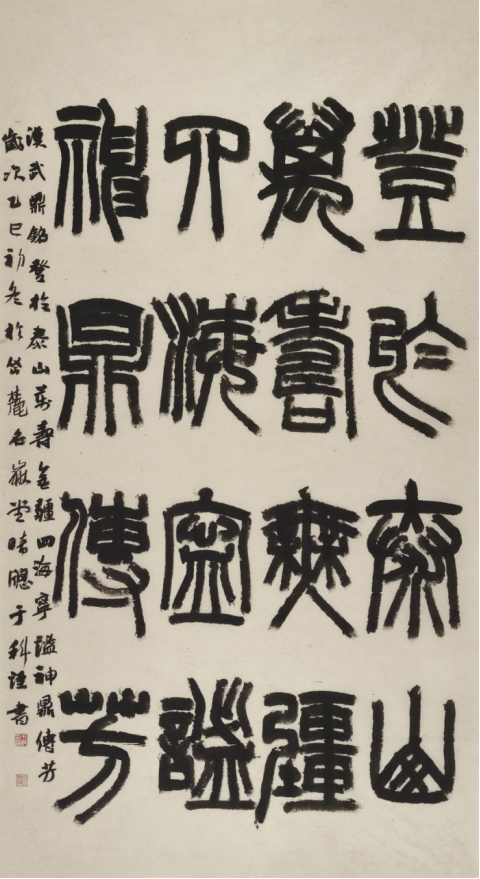 登於泰山
萬壽無疆
四海寧謐
神鼎傳芳
漢武鼎銘登於泰山萬壽無疆四海寧謐神鼎傳芳
歲次乙巳初冬於岱麓名嶽堂晴牕于科謹書